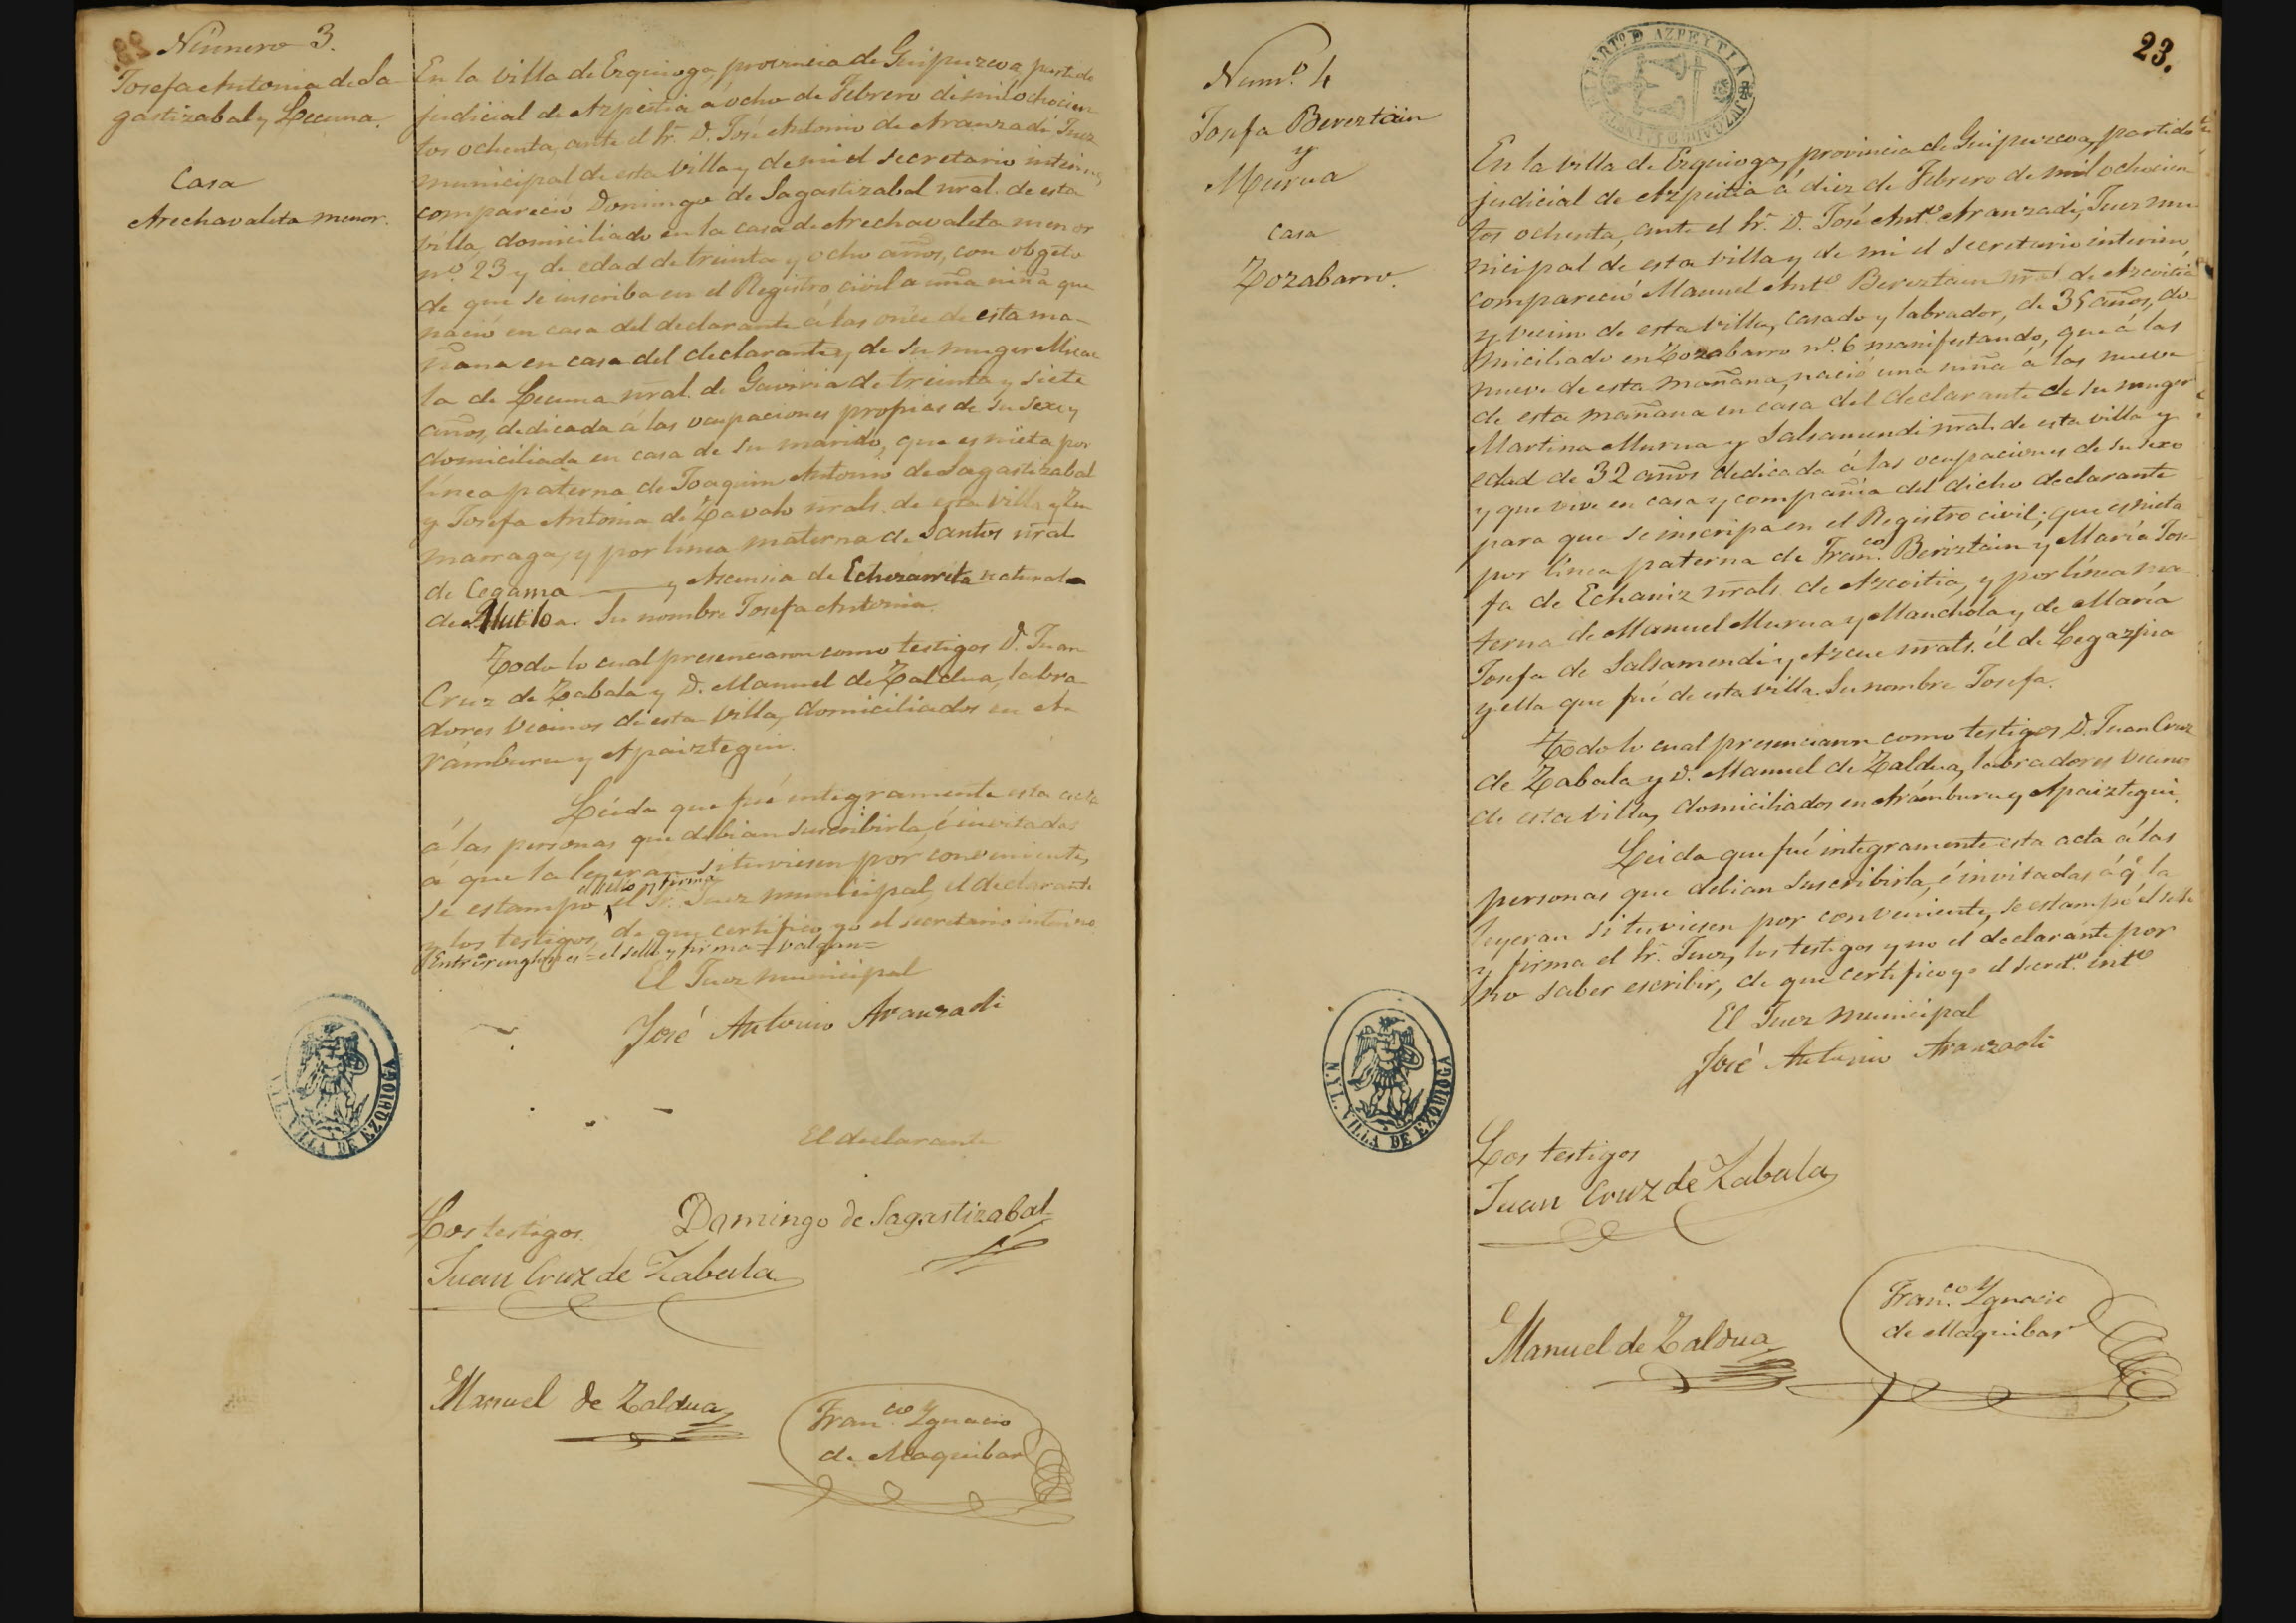 Número 3.
Josefa Antonia de Sa-
gastizabal y Lecuna.
Casa
Arechavaleta menor.
En la villa de Ezquioga, provincia de Guipuzcoa, partido
judicial de Azpeitia á ocho de Febrero de mil ochocien
tos ochenta, ante el Sr. D. José Antonio de Aranzadi Juez
municipal de esta villa y de mi el secretario interino,
compareció Domingo de Sagastizabal nral. de esta
villa, domiciliado en la casa de Arechavaleta menor
nº 23 y de edad de treinta y ocho años, con obgeto
de que se inscriba en el Registro civil a una niña que
nació en casa del declarante á las once de esta ma-
ñana en casa del declarante y de su muger Micae
la de Lecuna nral. de Gaviria de treinta y siete
años, dedicada á las ocupaciones propias de su sexo y
domiciliada en casa de su marido, que es nieta por
línea paterna de Joaquin Antonio de Sagastizabal
y Josefa Antonia de Zavalo nrals. de esta villa y Zu
marraga, y por línea materna de Santos nral
de Cegama y Ascensia de Echezarreta natural
de Mutiloa. Su nombre Josefa Antonia.
Todo lo cual presenciaron como testigos D. Juan
Cruz de Zabala y D. Manuel de Zaldua, labra
dores vecinos de esta villa, domiciliados en A
rámburu y Apaiztegui.
Leida que fué integramente esta acta
á las personas que debian suscribirla, é invitadas
á que la leyeran si tuviesen por conveniente,
el sello y firma
se estampó el Sr. Juez municipal, el declarante
y los testigos, de que certifico yo el secretario interino
Entrerenglones = el sello y firma = valgan =
El Juez municipal
José Antonio Aranzadi
N. Y L. VILLA DE EZQUIOGA
El declarante
Domingo de Sagastizabal
Los testigos.
Juan Cruz de Zabala
Manuel de Zaldua
Fran.co Ygnacio
de Maquibar
23.
PARTº D AZPEYTIA
JUZGADO
Numº 4
Josefa Bereztain
y
Murua
Casa
Zozabarro.
En la villa de Ezquioga, provincia de Guipuzcoa, partido
judicial de Azpeitia á diez de Febrero de mil ochocien
tos ochenta, ante el Sr. D. José Antº Aranzadi, Juez mu
nicipal de esta villa y de mi el secretario interino,
compareció Manuel Antº Bereztain nral de Azcoitia
y vecino de esta villa, casado y labrador, de 35 años, do-
miciliado en Zozabarro nº 6 manifestando, que á las
nueve de esta mañana, nació una niña á las nueve
de esta mañana en casa del declarante de su muger
Martina Murua y Salsamendi nral. de esta villa y
edad de 32 años dedicada á las ocupaciones de su sexo
y que vive en casa y compañia del dicho declarante
para que se inscripa en el Registro civil; que es nieta
por línea paterna de Fran.co Beriztain y María Jose-
fa de Echaniz nrals. de Azcoitia, y por línea ma-
terna de Manuel Murua y Manchola y de María
Josefa de Salsamendi y Azcue nrals. él de Legazpia
y ella que fué de esta villa. Su nombre Josefa.
Todo lo cual presenciaron como testigos D. Juan Cruz
de Zabala y D. Manuel de Zaldua, labradores vecinos
de esta villa, domiciliados en Arámburu y Apaiztegui.
Leida que fué integramente esta acta á las
personas que debian suscribirla, é invitadas á q.e la
leyeran si tuviesen por conveniente, se estampó el sello
y firma el Sr. Juez, los testigos y no el declarante por
no saber escribir, de que certifico yo el secret.º int.º
El Juez municipal
José Antonio Aranzadi
N. Y L. VILLA DE EZQUIOGA
Los testigos
Juan Cruz de Zabala
Manuel de Zaldua
Fran.co Ygnacio
de Maquibar